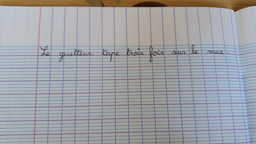 Le guetteur tape trois fois sur le mur.